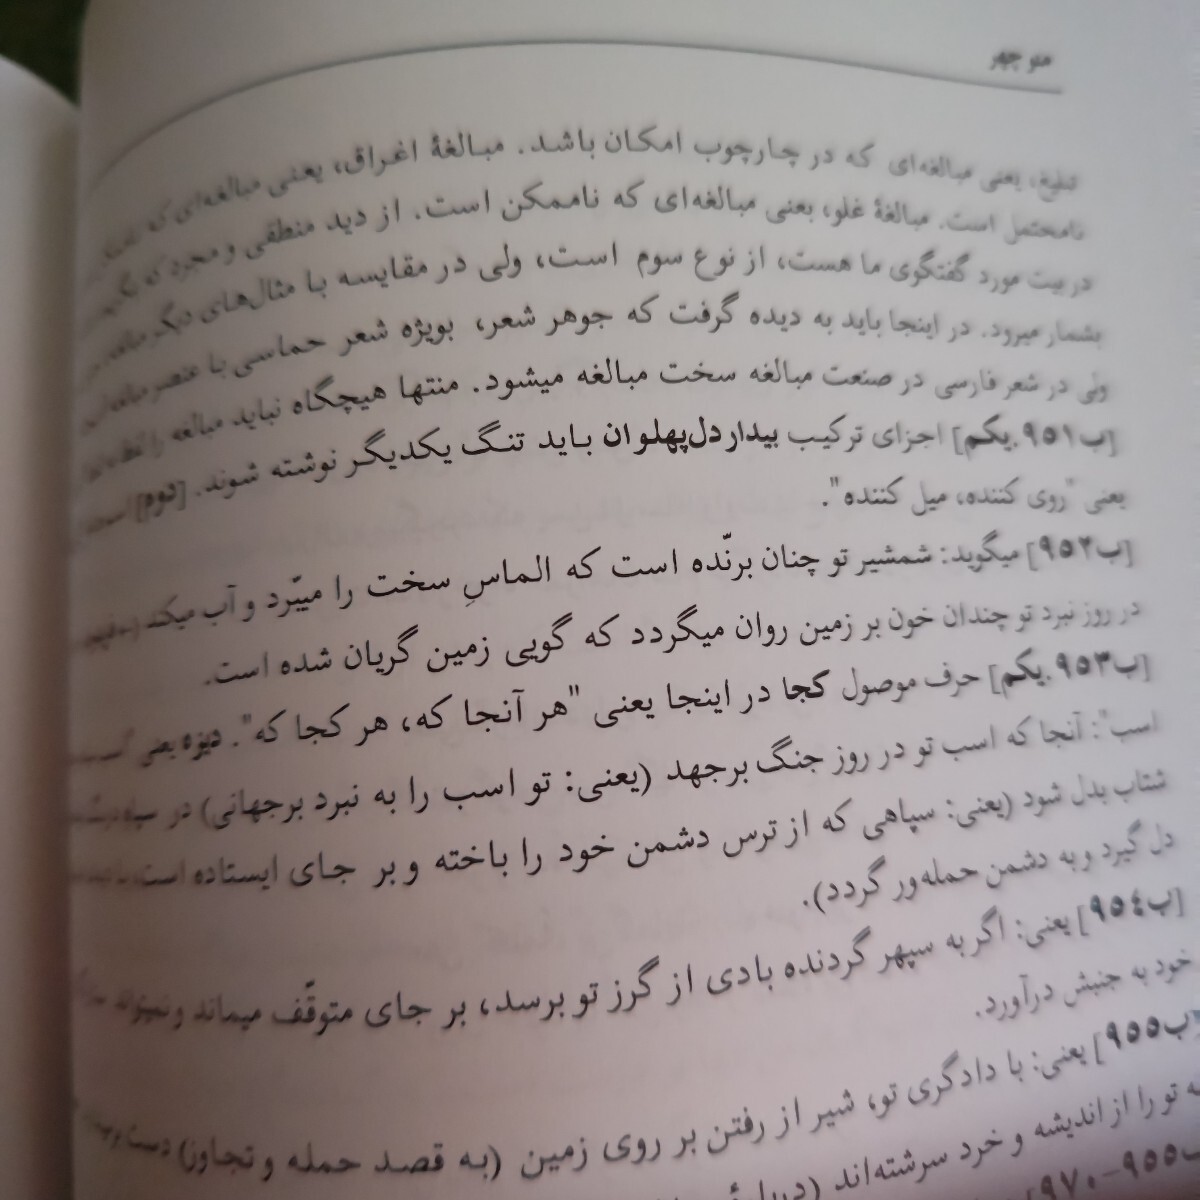 منوچهر
تبلیغ، یعنی مبالغه‌ای که در چارچوب امکان باشد. مبالغهٔ اغراق، یعنی مبالغه‌ای که
نامحتمل است. مبالغهٔ غلو، یعنی مبالغه‌ای که ناممکن است. از دید منطقی و مجرد که
در بیت مورد گفتگوی ما هست، از نوع سوم است، ولی در مقایسه با مثال‌های دیگر
بشمار میرود. در اینجا باید به دیده گرفت که جوهر شعر، بویژه شعر حماسی با عنصر
ولی در شعر فارسی در صنعت مبالغه سخت مبالغه میشود. منتها هیچگاه نباید مبالغه را
[ب۹۵۱.یکم] اجزای ترکیب بیداردل‌پهلوان باید تنگ یکدیگر نوشته شوند. [دوم]
یعنی "روی کننده، میل کننده".
[ب۹۵۲] میگوید: شمشیر تو چنان برنّده است که الماسِ سخت را میبّرد و آب میکند
در روز نبرد تو چندان خون بر زمین روان میگردد که گویی زمین گریان شده است.
[ب۹۵۳.یکم] حرف موصول کجا در اینجا یعنی "هر آنجا که، هر کجا که". دیزه یعنی
اسب": آنجا که اسب تو در روز جنگ برجهد (یعنی: تو اسب را به نبرد برجهانی) در سپاه
شتاب بدل شود (یعنی: سپاهی که از ترس دشمن خود را باخته و بر جای ایستاده است،
دل گیرد و به دشمن حمله‌ور گردد).
[ب۹۵٤] یعنی: اگر به سپهر گردنده بادی از گرز تو برسد، بر جای متوقّف میماند و نمیتواند
خود به جنبش درآورد.
ب۹۵۵] یعنی: با دادگری تو، شیر از رفتن بر روی زمین (به قصد حمله و تجاوز) دست
تو را از اندیشه و خرد سرشته‌اند
ب۹۵۵-۹۷۰]